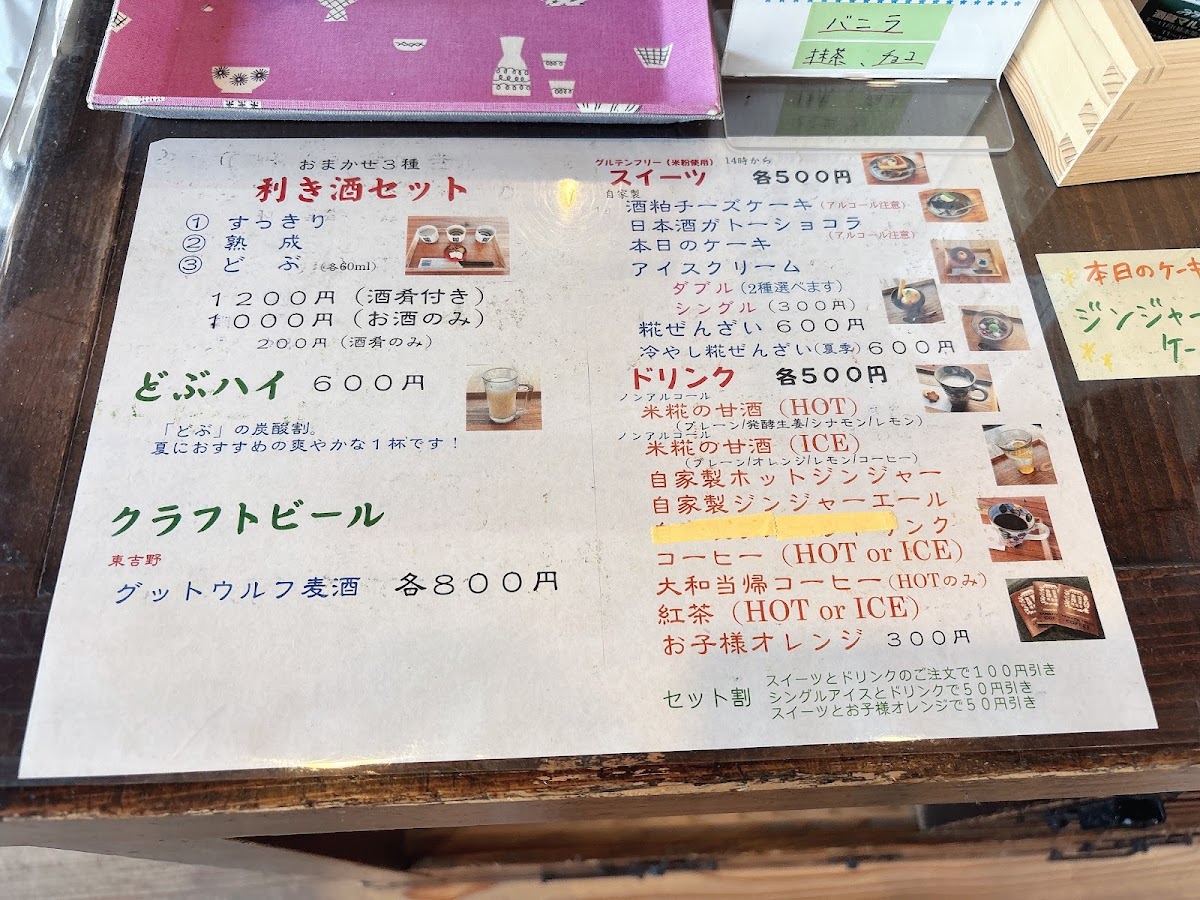 バニラ
抹茶、チョコ
おまかせ３種
利き酒セット
① すっきり
② 熟 成
③ ど ぶ （各60ml）
１２００円（酒肴付き）
１０００円（お酒のみ）
２００円（酒肴のみ）
どぶハイ ６００円
「どぶ」の炭酸割。
夏におすすめの爽やかな１杯です！
クラフトビール
東吉野
グットウルフ麦酒 各８００円
グルテンフリー（米粉使用） 14時から
スイーツ 各５００円
自家製
酒粕チーズケーキ（アルコール注意）
日本酒ガトーショコラ
（アルコール注意）
本日のケーキ
アイスクリーム
ダブル（2種選べます）
シングル（３００円）
糀ぜんざい ６００円
冷やし糀ぜんざい（夏季）６００円
ドリンク 各５００円
ノンアルコール
米糀の甘酒（HOT）
（プレーン/発酵生姜/シナモン/レモン）
ノンアルコール
米糀の甘酒（ICE）
（プレーン/オレンジ/レモン/コーヒー）
自家製ホットジンジャー
自家製ジンジャーエール
リンク
コーヒー（HOT or ICE）
大和当帰コーヒー（HOTのみ）
紅茶（HOT or ICE）
お子様オレンジ ３００円
セット割
スイーツとドリンクのご注文で１００円引き
シングルアイスとドリンクで５０円引き
スイーツとお子様オレンジで５０円引き
本日のケー
ジンジャー
ケー